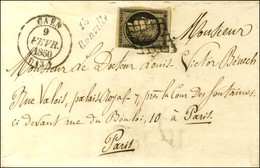 CAEN
9
FEVR.
1850
Monsieur
Monsieur le Docteur Louis Victor Bénech
Rue Valois, palais Royal 7 près la Cour des fontaines,
ci devant rue du Bouloi, 10 à Paris.
Paris